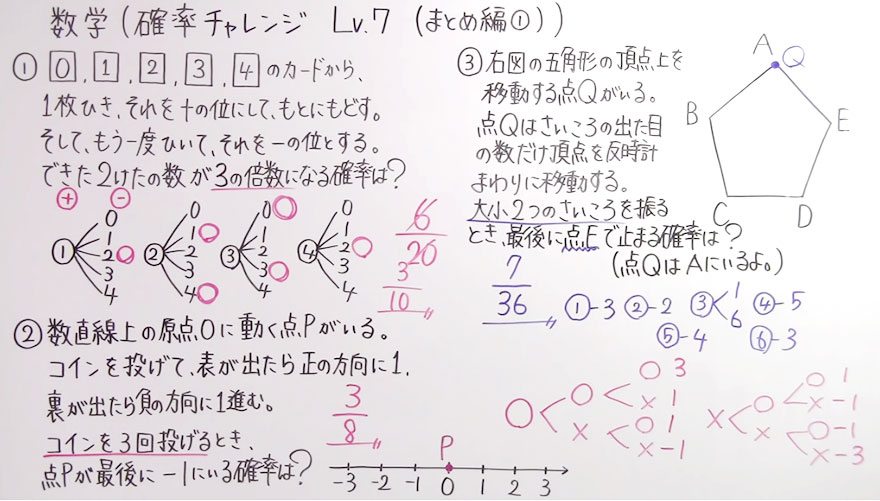 数学(確率チャレンジ Lv.7 (まとめ編①))
① 0, 1, 2, 3, 4 のカードから、
1枚ひき、それを十の位にして、もとにもどす。
そして、もう一度ひいて、それを一の位とする。
できた2けたの数が3の倍数になる確率は?
+ −
① 0 1 2 3 4
② 0 1 2 3 4
③ 0 1 2 3 4
④ 0 1 2 3 4
6/20
3/10
② 数直線上の原点Oに動く点Pがいる。
コインを投げて、表が出たら正の方向に1,
裏が出たら負の方向に1進む。
コインを3回投げるとき、
点Pが最後に−1にいる確率は?
3/8
P
-3 -2 -1 0 1 2 3
③ 右図の五角形の頂点上を
移動する点Qがいる。
点Qはさいころの出た目
の数だけ頂点を反時計
まわりに移動する。
大小2つのさいころを振る
とき、最後に点Eで止まる確率は?
(点QはAにいるよ。)
A Q
B E
C D
7/36
①-3 ②-2 ③<1 6 ④-5
⑤-4 ⑥-3
○<○<○ 3
× 1
×<○ 1
×-1
×<○<○ 1
×-1
×<○-1
×-3